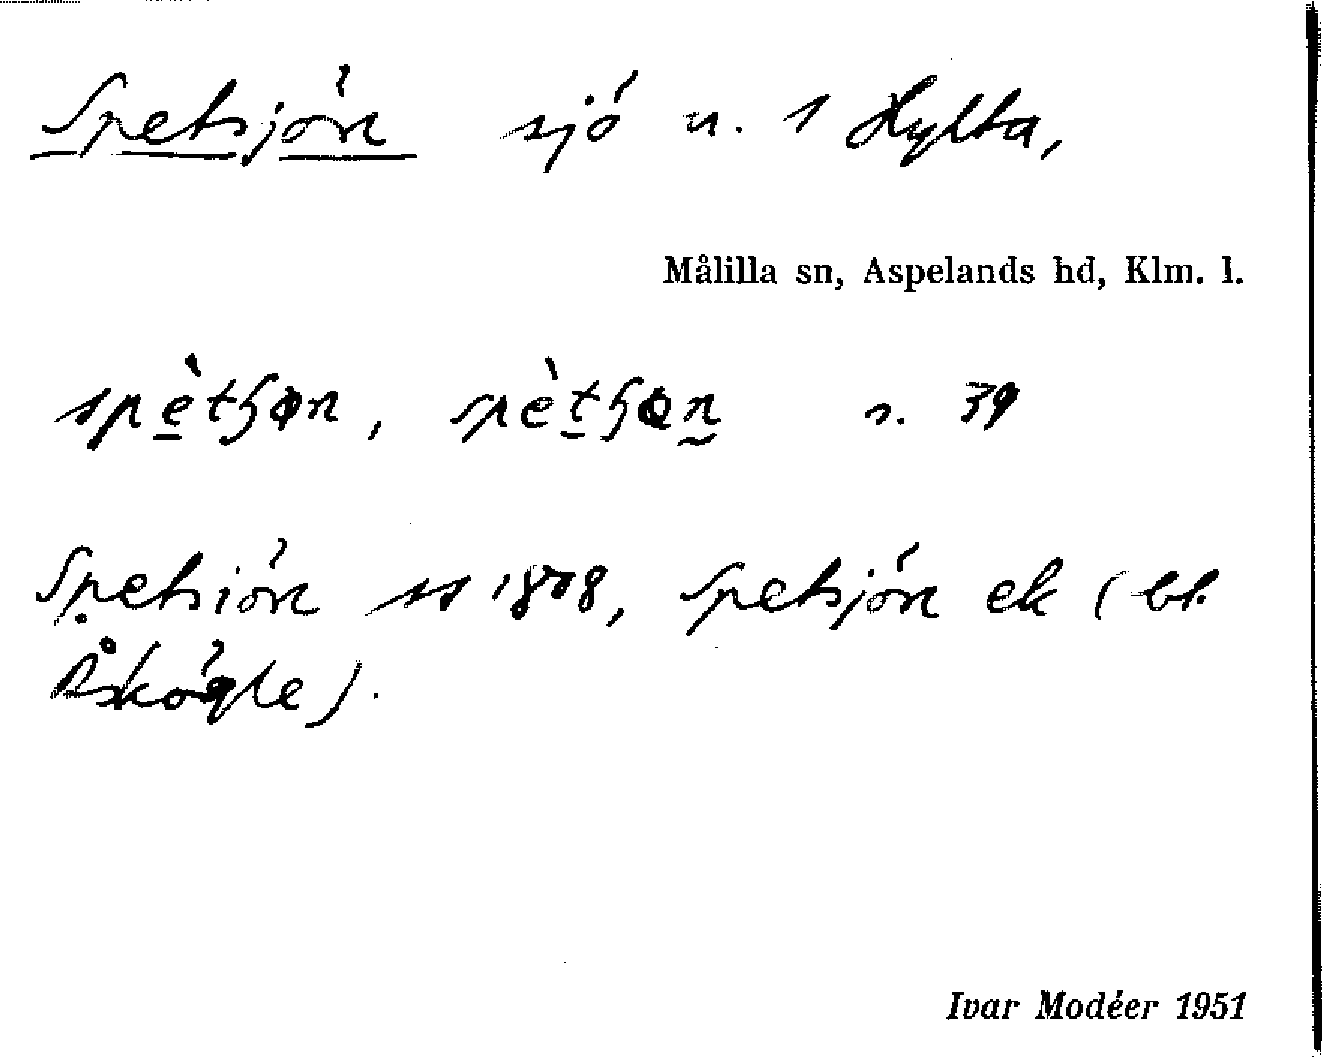 Spetsjön sjö n. 1 Hylta,
Målilla sn, Aspelands hd, Klm. l.
spèt̠ɧøn, spèt̠ɧøn s. 39
Spetsiön ss 1808, Spetsjön ek (bl.
Åskögle).
Ivar Modéer 1951